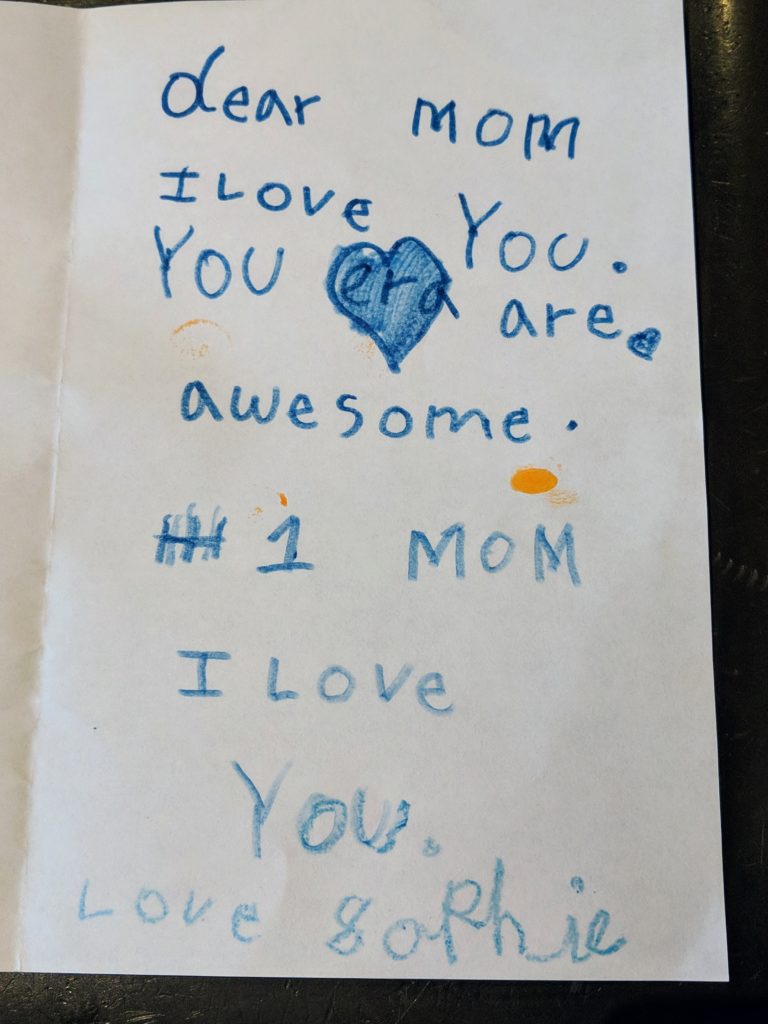 dear mom
I Love You.
You era are.
awesome.
# 1 MOM
I Love
You.
Love Sophie